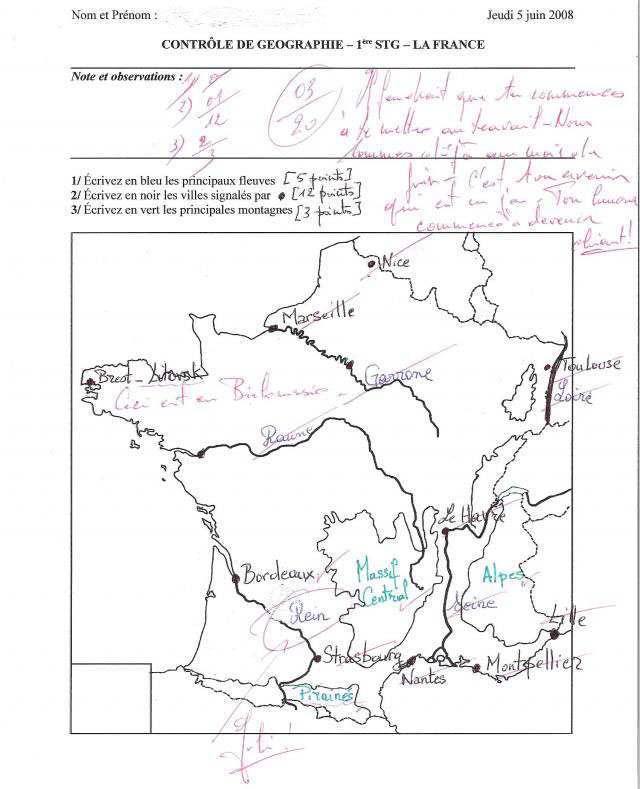 Nom et Prénom :
Jeudi 5 juin 2008
CONTRÔLE DE GEOGRAPHIE – 1ère STG – LA FRANCE
Note et observations :
1) 0
2) 01/12
3) 2/3
03/20
Il faudrait que tu commences
à te mettre au travail – Nous
sommes déjà au mois de
juin – C'est ton avenir
qui est en jeu – Ton humour
commence à devenir
chiant !
1/ Écrivez en bleu les principaux fleuves [5 points]
2/ Écrivez en noir les villes signalés par ● [12 points]
3/ Écrivez en vert les principales montagnes [3 points]
Nice
Marseille
Garrone
Toulouse
Loire
Brest – Litovsk
Ceci est en Biélorussie –
Raune
Le Havre
Bordeaux
Massif
Central
Alpes
Rein
Seine
Lille
Strasbourg
Nantes
Montpellier
Pirainés
Joli !